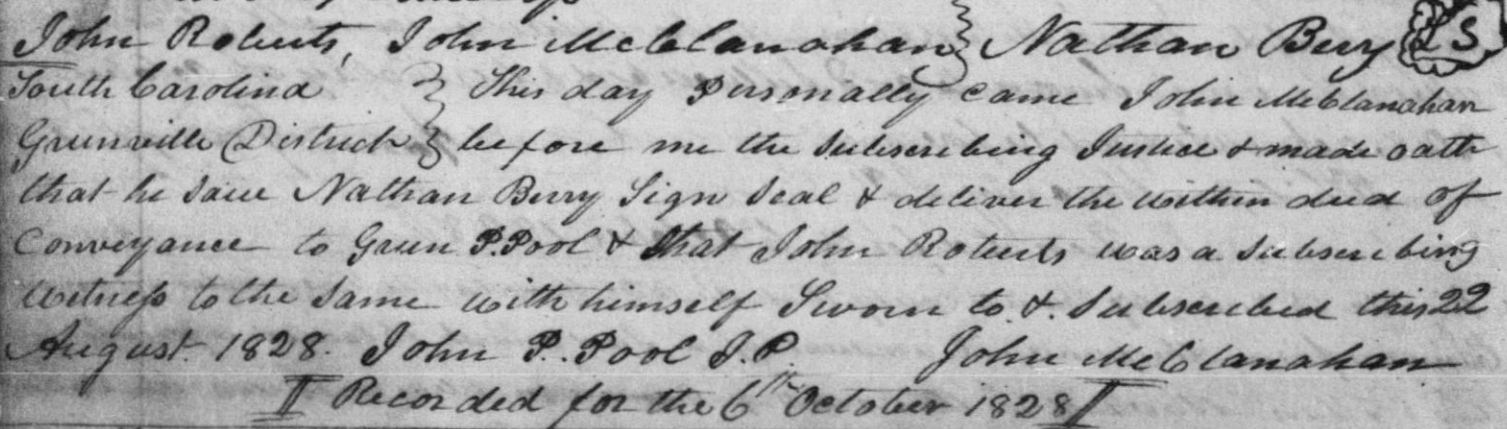 John Roberts, John McClanahan } Nathan Berry LS
South Carolina } This day Personally came John McClanahan
Greenville District } before me the Subscribeing Justice & made oath
that he Saw Nathan Berry Sign Seal & deliver the within deed of
Conveyance to Green P. Pool & that John Roberts was a Subscribing
Witness to the Same with himself Sworn to & Subscribed this 22
August. 1828. John P. Pool J.P. John McClanahan
Recorded for the 6th October 1828